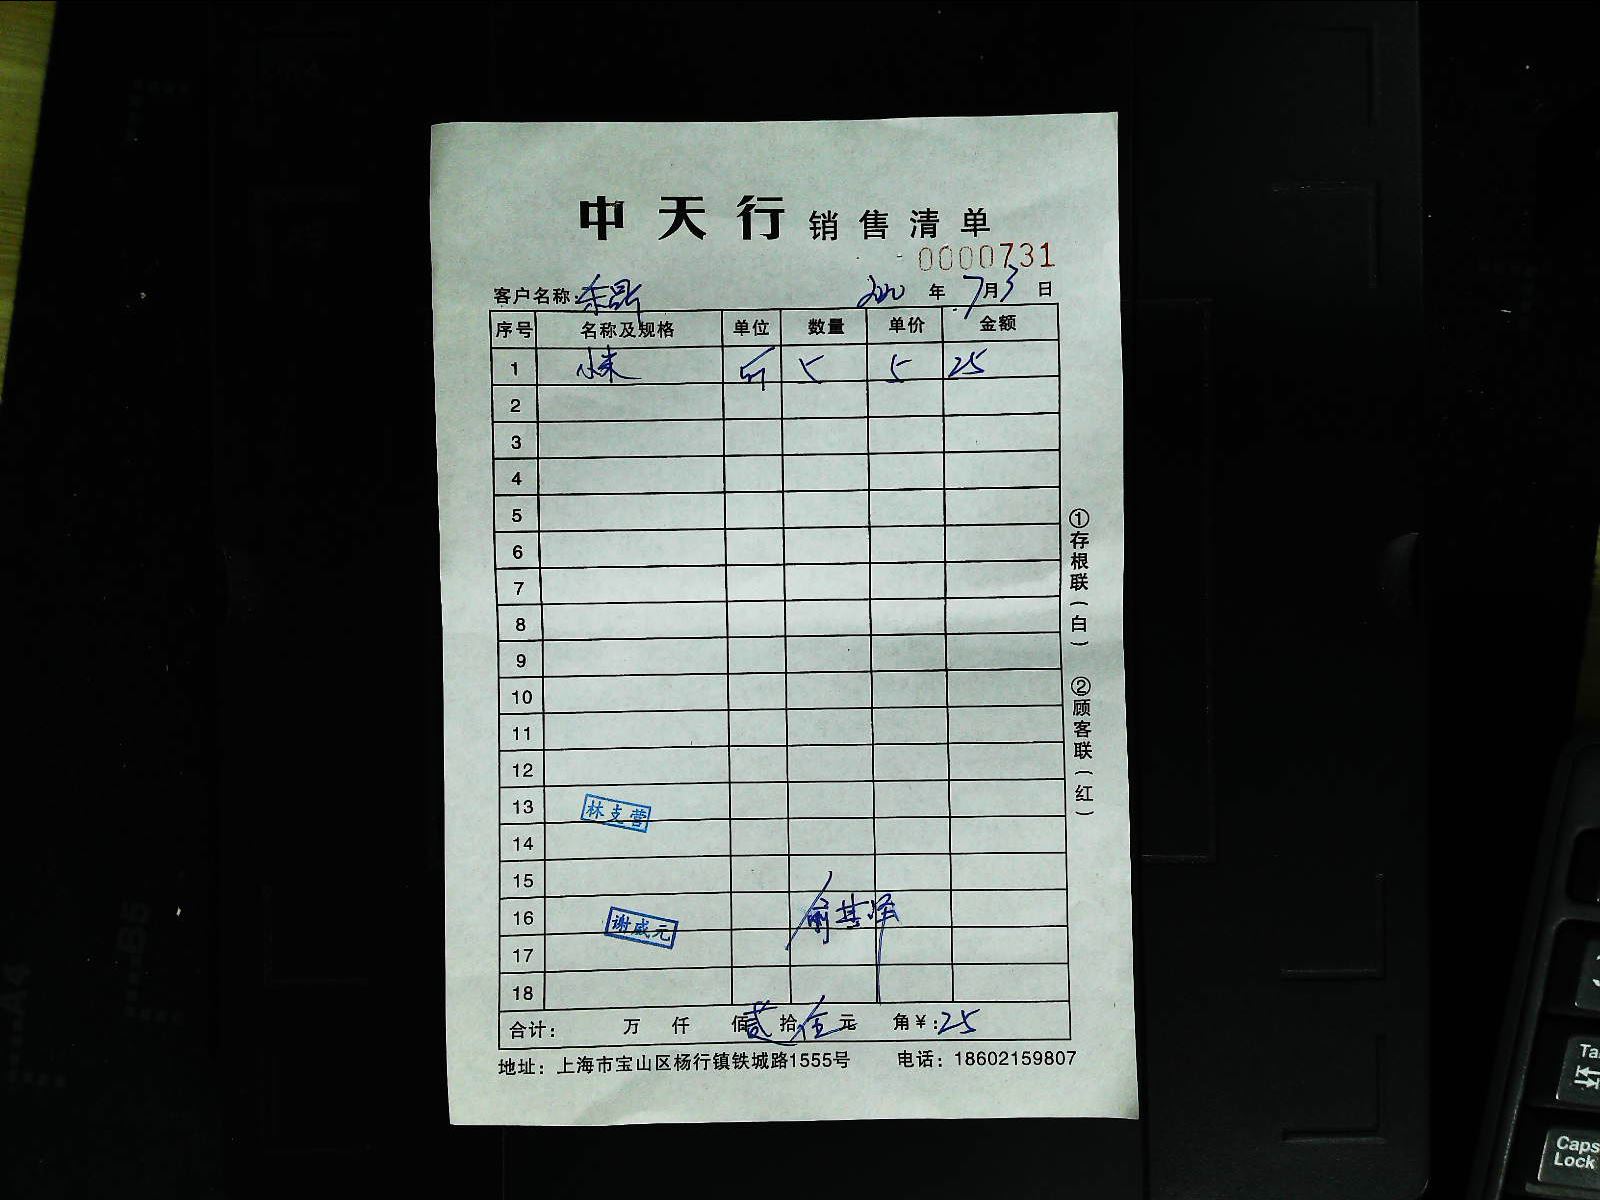 中天行 销售清单
0000731
客户名称: 2020 年 7 月 3 日
序号 名称及规格 单位 数量 单价 金额
1 小末 斤 5 5 25
2
3
4
5
6
7
8
9
10
11
12
13 林支营
14
15
16 谢威元 俞其泽
17
18
合计: 万 仟 佰 贰 拾 伍 元 角 ¥:25
地址: 上海市宝山区杨行镇铁城路1555号 电话: 18602159807
①存根联(白) ②顾客联(红)
A4
B5
Tab
Caps Lock